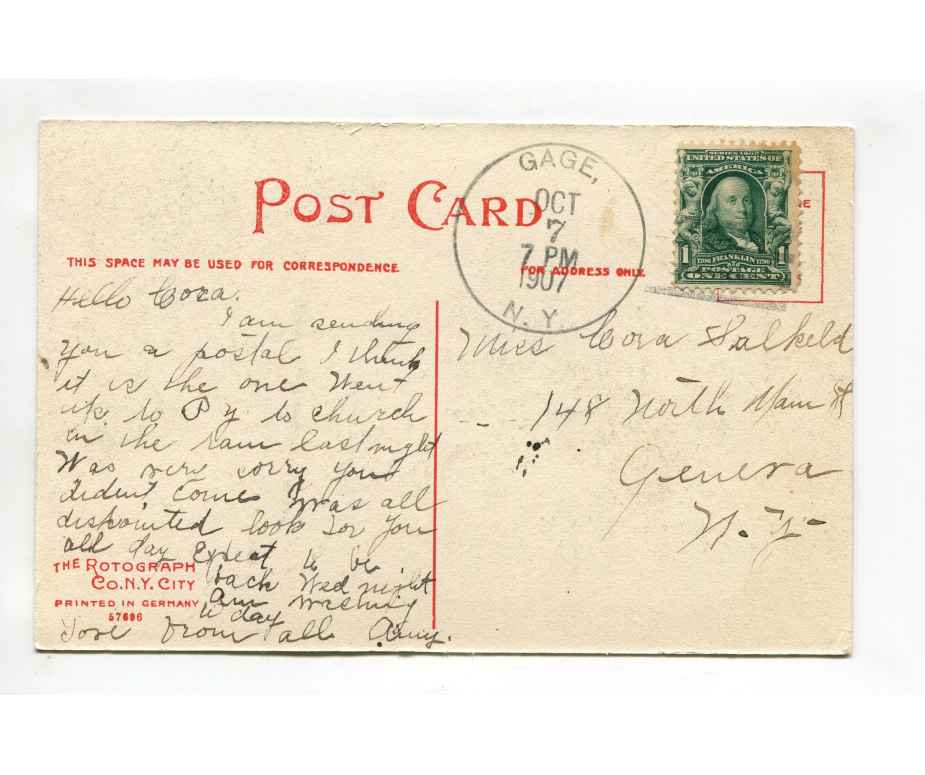 POST CARD
THIS SPACE MAY BE USED FOR CORRESPONDENCE
FOR ADDRESS ONLY
GAGE,
OCT
7
7 PM
1907
N.Y.
SERIES 1902
UNITED STATES OF
AMERICA
1 FRANKLIN 1
POSTAGE
ONE CENT
Hello Cora.
I am sending
you a postal I think
it is the one Went
up to P y. to church
in the rain last night
Was very sorry you
dident come I was all
dispointed look for you
all day Expect to be
back Wed night
am washing
to day
Love from all Amy.
THE ROTOGRAPH
CO. N.Y. CITY
PRINTED IN GERMANY
57696
Miss Cora Salkeld
148 North Main St
Geneva
N. Y-